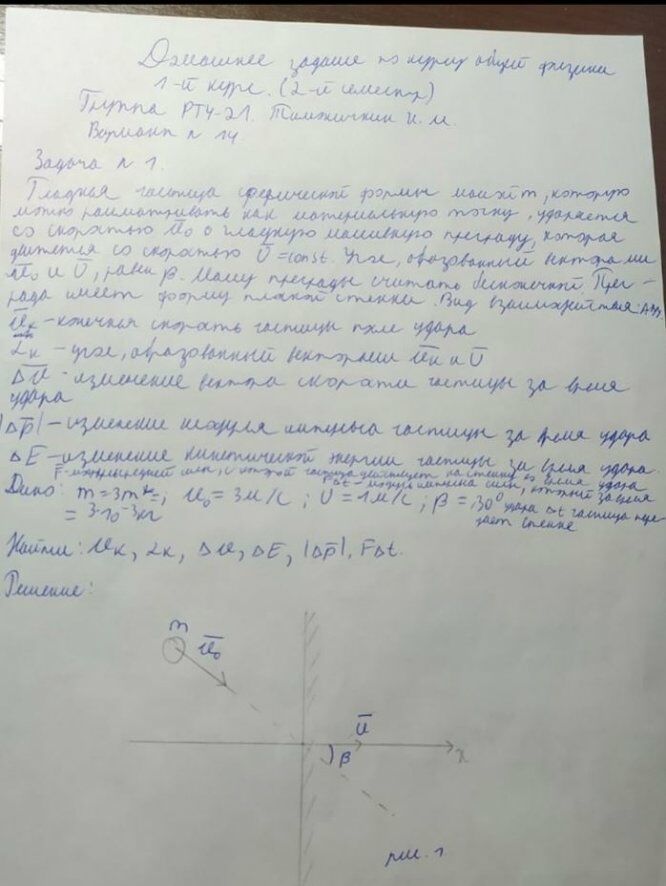 Домашнее задание по курсу общей физики
1-й курс. (2-й семестр)
Группа РТ4-21. И.М.
Вариант n 14.
Задача n 1.
Гладкая частица сферической формы массой m, которую
можно рассматривать как материальную точку, ударяется
со скоростью u̅₀ о гладкую массивную преграду, которая
движется со скоростью U̅ = const. Угол, образованный векторами
u̅₀ и U̅, равен β. Массу преграды считать бесконечной. Прег-
рада имеет форму плоской стенки. Вид взаимодействия:
u̅к - конечная скорость частицы после удара
αк - угол, образованный векторами u̅к и U̅
Δu̅ - изменение вектора скорости частицы за время
удара
|Δp̅| - изменение модуля импульса частицы за время удара
ΔE - изменение кинетической энергии частицы за время удара.
F - модуль средней силы, с которой частица действует на стенку во время удара
FΔt - модуль импульса силы, который за время
удара Δt частица пере-
дает стенке
Дано: m = 3 г =; u₀ = 3 м/с; U = 1 м/с; β = 30⁰
= 3·10⁻³ кг
Найти: uк, αк, Δu, ΔE, |Δp̅|, FΔt.
Решение:
m
u̅₀
U̅
β
x
рис. 1